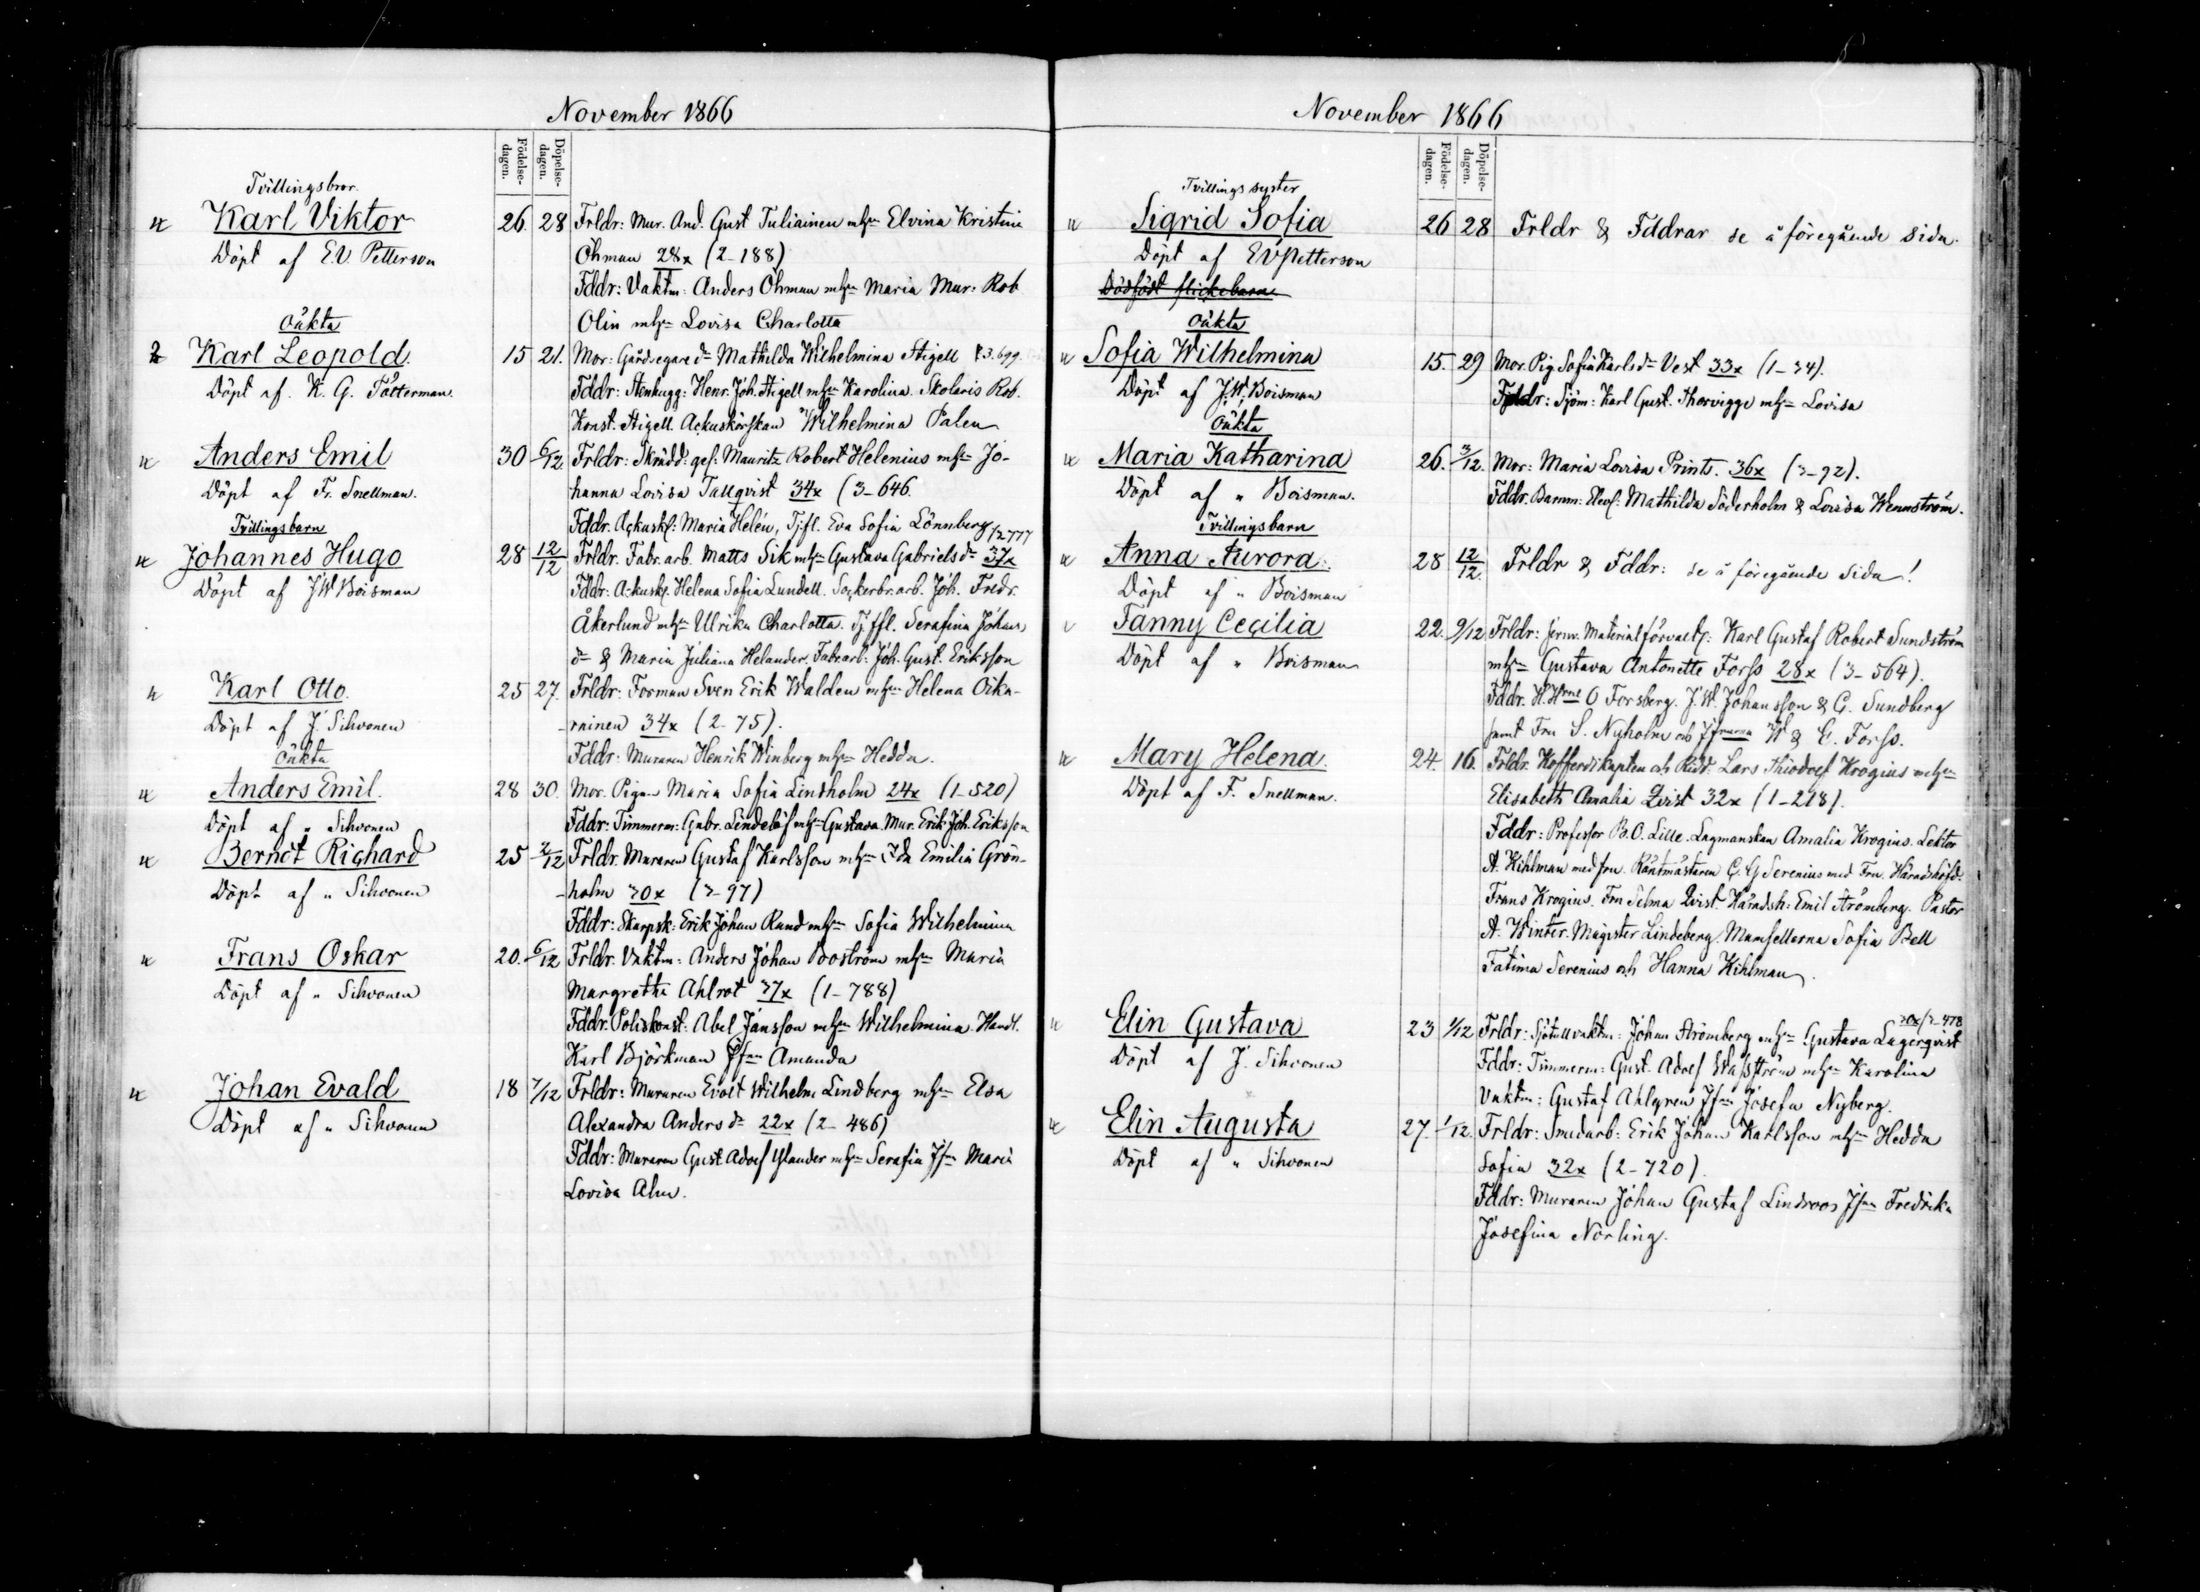 November 1866
Födelse-dagen.
Döpelse-dagen.
Tvillingsbror.
Karl Viktor 26. 28 Frldr: Mur. And. Gust Tuliainen mhn Elvina Kristina
Döpt af EV Petterson Öhman 28x (2-188)
Fddr: Vaktm: Anders Öhman mhn Maria Mur: Rob
Olin mhn Lovisa Charlotta
Oäkta
Karl Leopold. 15 21. Mor: Gårdsegare dr Mathilda Wilhelmina Stigell 3.699.
Döpt af. K. G. Tötterman. Fddr: Stenhugg: Henr. Joh. Stigell mhn Karolina. Skolaris Rob.
Konst. Stigell. Ackuskörskan Wilhelmina Palen
Anders Emil 30 6/12 Frldr: Skrädd: ges: Mauritz Robert Helenius mhn Jo-
Döpt af Fr. Snellman. hanna Lovisa Tallqvist 34x (3-646.
Fddr. Ackusk: Maria Helén, Tjfl. Eva Sofia Lönnberg
Tvillingsbarn
Johannes Hugo 28 12/12 Frldr. Fabr. arb. Matts Sik mhn Gustava Gabrielsdr 37x /2777
Döpt af JW Boisman Fddr: Ackusk. Helena Sofia Lundell. Sockerbr. arb. Joh. Fredr.
Åkerlund mhn Ulrika Charlotta. Tjffl. Serafina Johans
dr & Maria Juliana Helander. Fabr arb: Joh. Gust. Eriksson
Karl Otto. 25 27. Frldr: Forman Sven Erik Walden mhn Helena Oika-
Döpt af J. Sihvonen -rainen 34x (2-75).
Fddr: Muraren Henrik Winberg mhn Hedda.
Oäkta
Anders Emil. 28 30. Mor. Pigan Maria Sofia Lindholm 24x (1-520)
Döpt af " Sihvonen Fddr: Timmerm: Gabr. Lindelöf mhn Gustava. Mur. Erik Joh. Eriksson
Berndt Richard 25 2/12 Frldr. Muraren Gustaf Karlsson mhn Ida Emilia Grön-
Döpt af " Sihvonen -holm 30x (3-97)
Fddr: Skarpsk: Erik Johan Rand mhn Sofia Wilhelmina
Frans Oskar 20. 6/12 Frldr. Vaktm: Anders Johan Boström mhn Maria
Döpt af " Sihvonen Margretha Ahlrot 37x (1-788)
Fddr. Poliskonst: Abel Jansson mhn Wilhelmina. Handl.
Karl Björkman Jfrn Amanda
Johan Evald 18 7/12 Frldr: Muraren Evalt Wilhelm Lindberg mhn Elsa
Döpt af " Sihvonen Alexandra Anders dr 22x (2-486)
Fddr: Muraren Gust Adolf Ylander mhn Serafia Jfrn Maria
Lovisa Alm.
November 1866
Födelse-dagen.
Döpelse-dagen.
Tvillings syster
Sigrid Sofia 26 28 Frldr & Fddrar se å föregående sida.
Döpt af EV Petterson
Dödfödt flickebarn
Oäkta
Sofia Wilhelmina 15. 29 Mor. Pig Sofia Karls dr Vest 33x (1-34).
Döpt af J.W. Boisman Fddr: Sjöm: Karl Gust. Thorvigge mhn Lovisa
Oäkta
Maria Katharina 26. 3/12. Mor: Maria Lovisa Prints. 36x (3-92).
Döpt af " Boisman. Fddr. Barnm: Elev: Mathilda Söderholm & Lovisa Wennström.
Tvillingsbarn
Anna Aurora. 28 12/12. Frldr & Fddr: se å föregående sida!
Döpt af " Boisman
Fanny Cecilia 22. 9/12 Frldr: Jernv. Materialförvalt: Karl Gustaf Robert Sundström
Döpt af " Boisman mhn Gustava Antonette Forss 28x (3-564).
Fddr. H. Hrne O Forsberg. J.W. Johansson & G. Sundberg
samt Fru S. Nyholm och Jfrurna W & E. Forss.
Mary Helena. 24. 16. Frldr. Kofferdikapten och Ridd. Lars Thiodolf Krogius mhn
Döpt af F. Snellman. Elisabeth Amalia Qvist 32x (1-218).
Fddr: Professor B.O. Lille. Lagmanskan Amalia Krogius. Lektor
A. Kihlman med fru. Räntmästaren C. G Serenius med Fru. Häradshöfd.
Frans Krogius. Fru Selma Qvist. Häradsh: Emil Strömberg. Pastor
A. Winter. Magister Lindeberg. Mamsellerna Sofia Bell
Fatima Serenius och Hanna Kihlman.
Elin Gustava 23 1/12 Frldr: Sjötullvaktm: Johan Strömberg mhn Gustava Lagerqvist 30x/2-478
Döpt af J. Sihvonen Fddr: Timmerm: Gust. Adolf Wasström mhn Karolina
Vaktm: Gustaf Ahlgren Jfrn Josefa Nyberg.
Elin Augusta 27. 1/12. Frldr: Smedarb: Erik Johan Karlsson mhn Hedda
Döpt af " Sihvonen Sofia 32x (2-720)
Fddr: Muraren Johan Gustaf Lindroos Jfrn Fredrika
Josefina Norling.